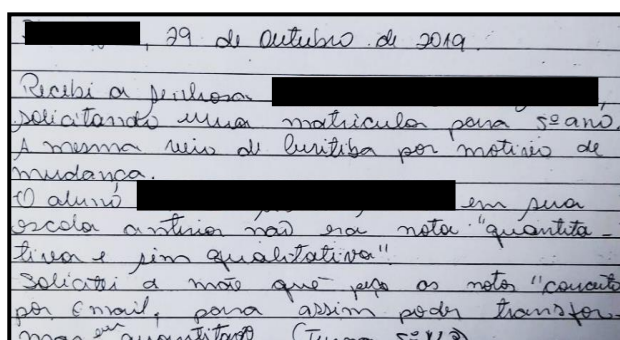 , 29 de Outubro de 2019.
Recebi a senhora
solicitando uma matricula para 5º ano.
A mesma veio de Curitiba por motivo de
mudança.
O aluno em sua
escola anterior não era nota "quantita-
tiva e sim qualitativa"
Solicitei a mãe que peça as notas "conceito
por Email, para assim poder transfor-
mar em quantitativo (Turma 5º